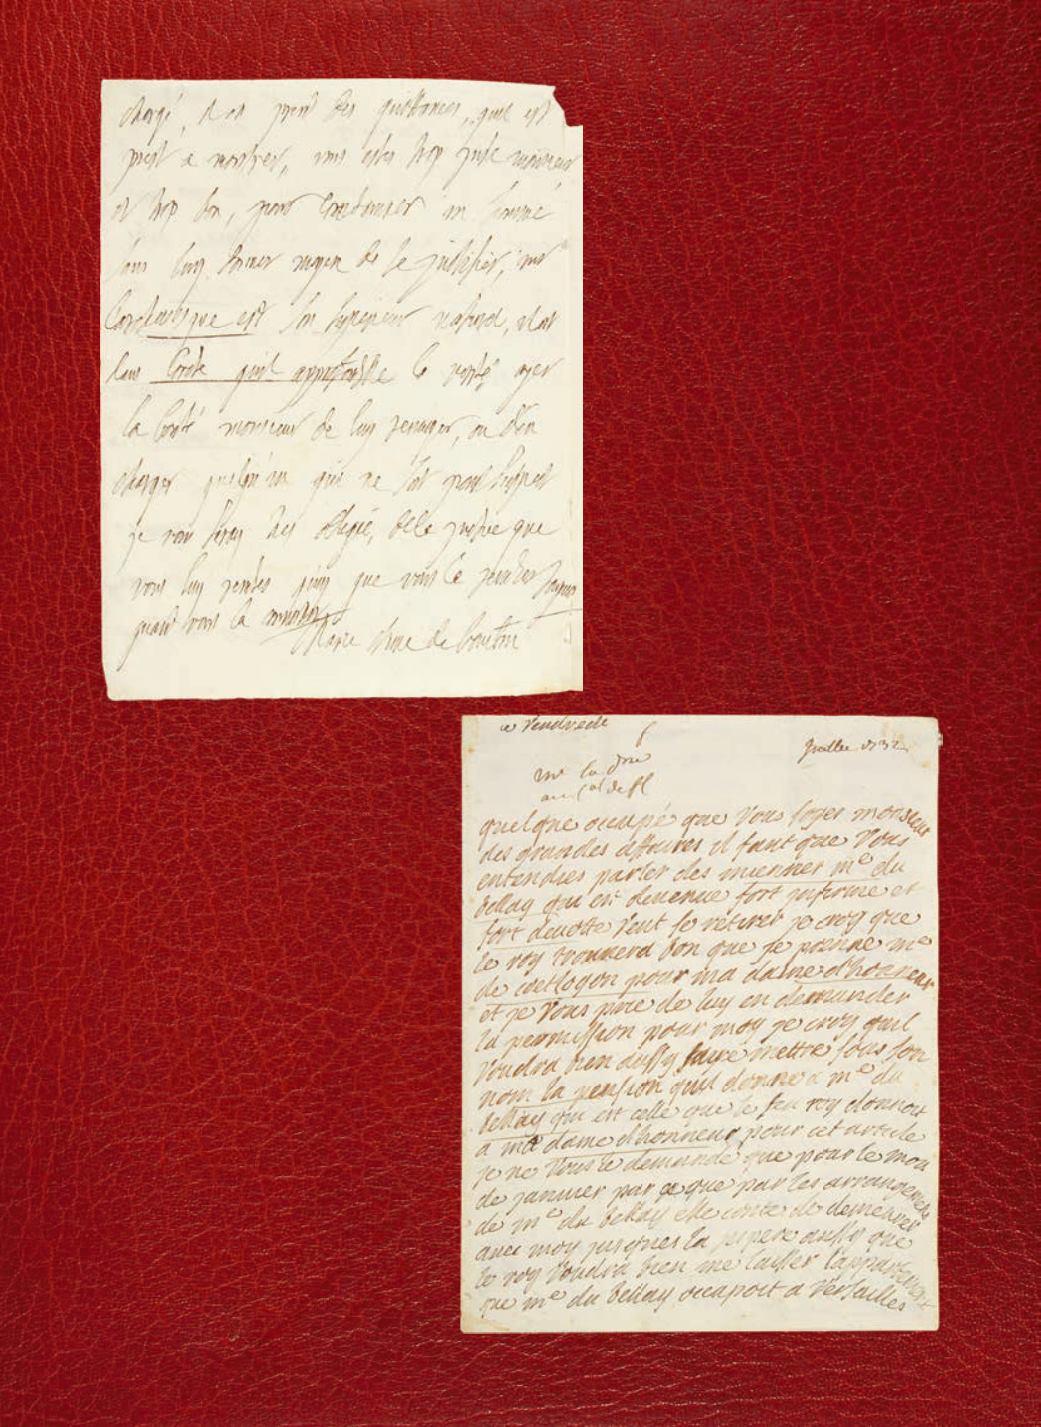 chargé, et en prent des quittances, quil est
prest a monstrer, vous estes trop juste monsieur
et trop bon, pour condamner un homme
sans luy donner moyen de se justifier, mr
est son superieur naturel, et dat
dans quil la verité ayez
la bonté monsieur de luy renvoyer, ou den
charger quelqu'un qui ne soit point suspect
je vous seray tres obligé, de la justice que
vous luy rendes que vous la
quand vous la
Marie Anne de bourbon
a Vendredi
Juillet 1732
me la
quelque occupé que Vous soyez monsieur
des grandes affaires il faut que Vous
entendies parler des miennes me du
bellay qui est devenue fort infirme et
fort devotte Veut se retirer je croy que
le roy trouvera bon que je prenne me
de coetlogon pour ma dame d'honneur
et je Vous prie de luy en demander
la permission pour moy je croy quil
Voudra bien aussy faire mettre sous son
nom la pension quil donne a me du
bellay qui est celle que le feu roy donnoit
a ma dame d'honneur pour cet article
je ne Vous le demande que pour le mois
de janvier par ce que par les arrangements
de me du bellay elle conte de demeurer
avec moy jusques la aussy que
le roy Voudra bien me laisser l'appartement
que me du bellay occupoit a Versailles